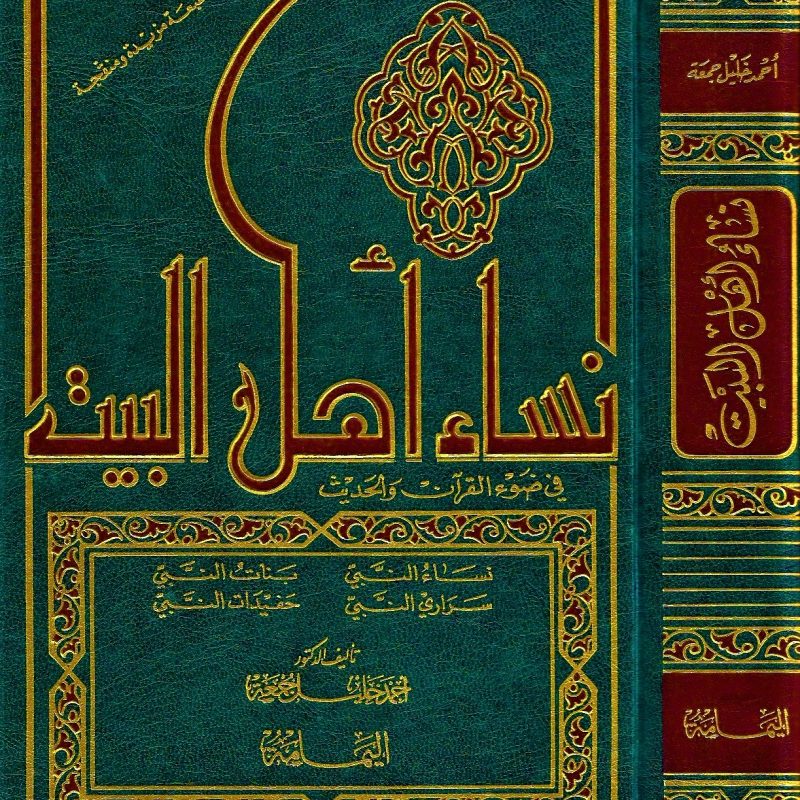 طبعة مزيدة ومنقحة
نساء أهل البيت
في ضوء القرآن والحديث
نساء النبي بنات النبي
سراري النبي حفيدات النبي
تأليف الدكتور
أحمد خليل جمعة
اليمامة
أحمد خليل جمعة
نساء أهل البيت
اليمامة